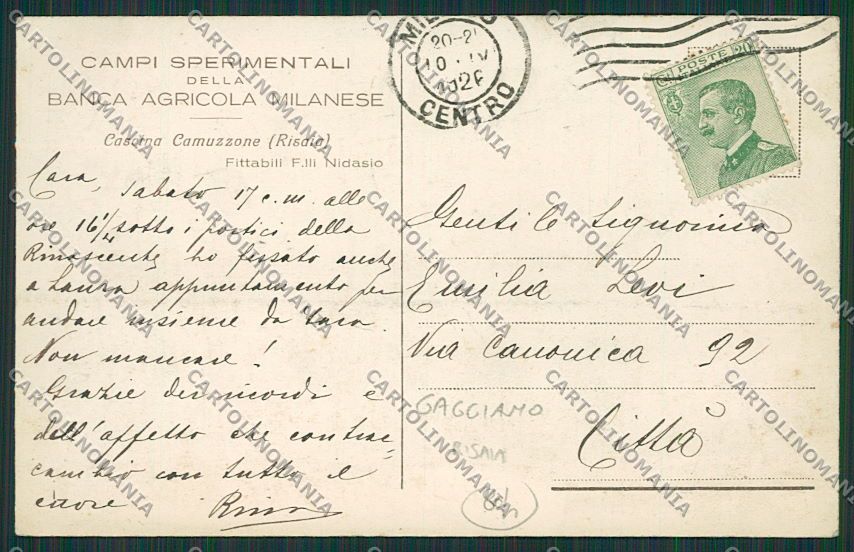 CAMPI SPERIMENTALI
DELLA
BANCA AGRICOLA MILANESE
Cascina Camuzzone (Risaia)
Fittabili F.lli Nidasio
Cara, Sabato 17 c.m. alle
ore 16½ sotto i portici della
Rinascente ho fissato anche
a Laura appuntamento per
andare insieme da
Non mancare!
Grazie dei ricordi e
dell'affetto che contrac-
cambio con tutto il
cuore
MILANO
20-21
1926
CENTRO
POSTE
20
Gentile Signorina
Emilia Levi
Via Canonica 92
Città
GAGGIANO
RISAIA
CARTOLINOMANIA